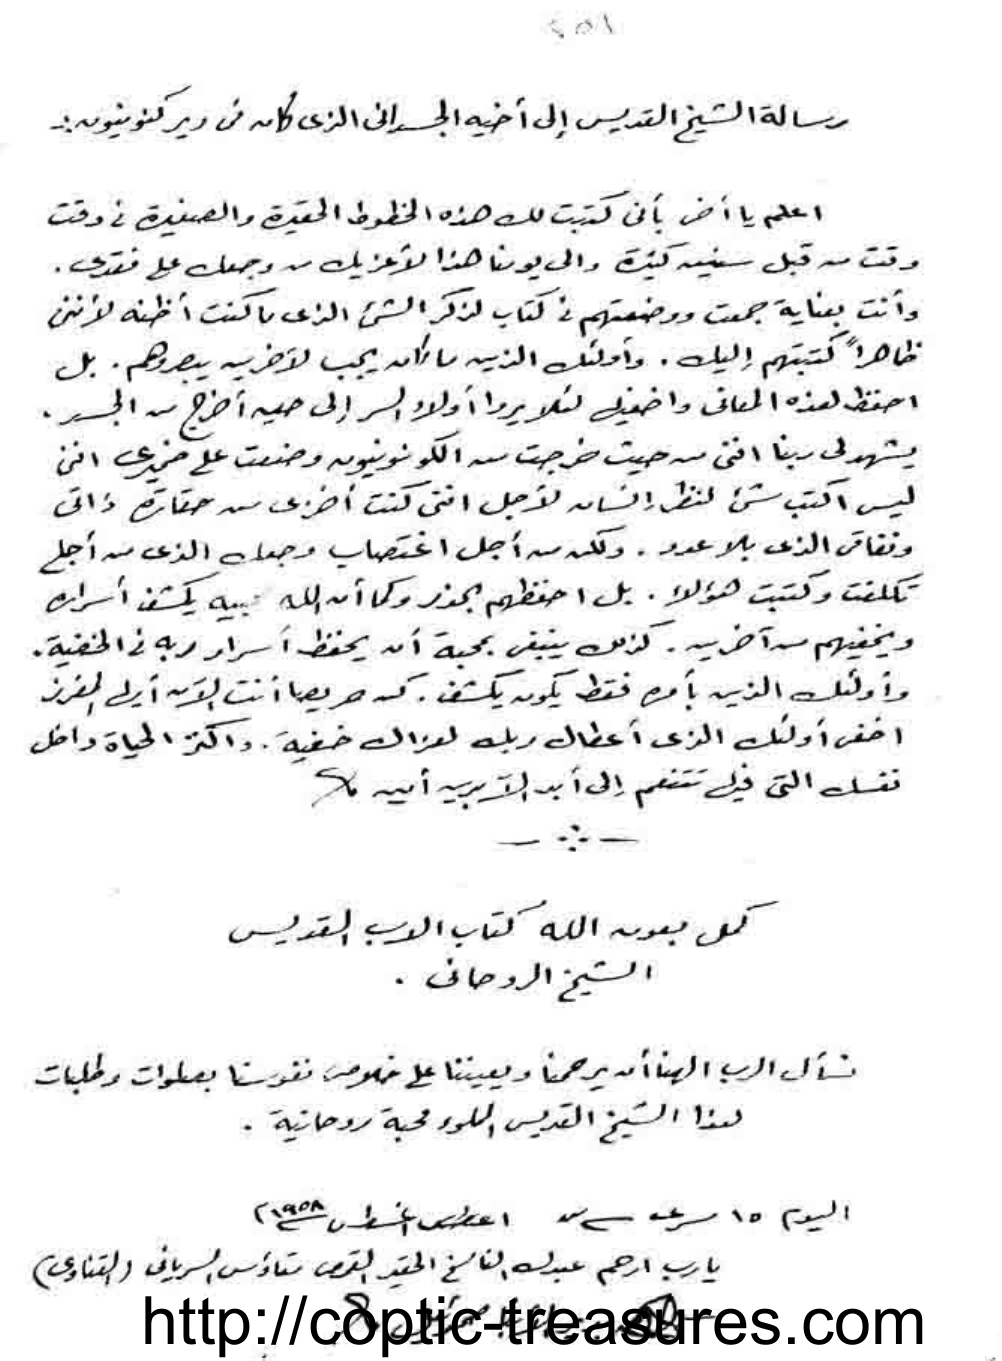 رسالة الشيخ القديس إلى أخيه الجسدانى الذى كان فى دير كنوبيون :-
اعلم يا أخى بأنى كتبت لك هذه الخطوط الحقيرة والصغيرة فى وقت
وقت من قبل سنين كثيرة والى يومنا هذا لأعزيك من وجعك على فقدى .
وأنت بعناية جمعت ووضعتهم فى كتاب لذكر الشئ الذى ما كنت أظنه لأننى
ظاهراً كتبتهم إليك . وأولئك الذين ما كان يجب لآخرين يبصروهم . بل
احفظ هذه المعانى واخفيها لئلا يروا أولاد السر إلى حين أخرج من الجسد .
يشهد لى ربنا اننى من حيث خرجت من الكونوبيون وضعت على ضميرى اننى
ليس اكتب شئ لنظر إنسان لأجل اننى كنت أخزى من حقارة ذاتى
ونفاقى الذى بلا عدد . ولكن من أجل اغتصاب وجعك الذى من أجلى
تكلفت وكتبت هؤلاء . بل احفظهم بحذر وكما أن الله يكشف أسراره
ويخفيهم من آخرين . كذلك ينبغى بمحبة أن يحفظ أسرار ربه فى الخفية .
وأولئك الذين يأمره فقط يكون يكشف . كن حريصا أنت الآن أيها المفرز
اخفى أولئك الذى أعطاك ربك لعزاك خفية . واكنز الحياة داخل
نفسك التى فيها تتنعم إلى أبد الآبدين أمين
كمل بعون الله كتاب الاب القديس
الشيخ الروحانى .
نسأل الرب الهنا أن يرحمنا ويعيننا على خلاص نفوسنا بصلوات وطلبات
هذا الشيخ القديس المملوء محبة روحانية .
اليوم ١٥ مسرى اغسطس ١٩٥٨
يارب ارحم عبدك الناسخ الحقير القمص متاؤس السريانى
http://coptic-treasures.com